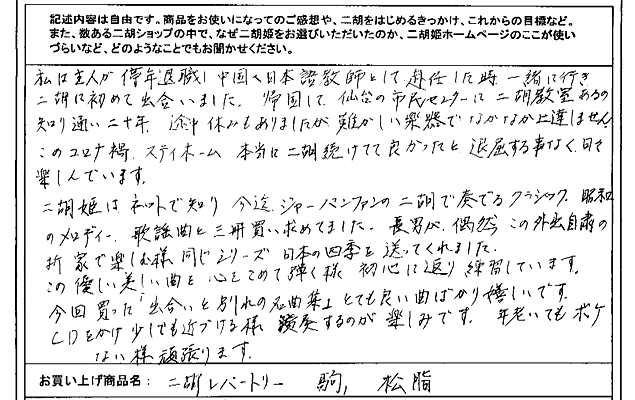 記述内容は自由です。商品をお使いになってのご感想や、二胡をはじめるきっかけ、これからの目標など。
また、数ある二胡ショップの中で、なぜ二胡姫をお選びいただいたのか、二胡姫ホームページのここが使い
づらいなど、どのようなことでもお聞かせください。
私は主人が停年退職し中国へ日本語教師として赴任した時一緒に行き
二胡に初めて出会いました。帰国して仙台の市民センターに二胡教室あるの
知り通い二十年、途中休みもありましたが難かしい楽器でなかなか上達しません。
このコロナ禍、スティホーム 本当に二胡続けてて良かったと退屈する事なく日々
楽しんでいます。
二胡姫はネットで知り 今迄、ジャーパンファンの二胡で奏でるクラシック、昭和
のメロディー、歌謡曲と三冊買い求めてました。長男が、偶然この外出自粛の
折 家で楽しむ様 同じシリーズ 日本の四季を送ってくれました。
この優しい美しい曲を 心をこめて弾く様 初心に返り練習しています。
今回買った「出会いと別れの名曲集」とても良い曲ばかり嬉しいです。
CDをかけ少しでも近づける様 演奏するのが楽しみです。年老いてもボケ
ない様頑張ります。
お買い上げ商品名： 二胡レパートリー 駒, 松脂